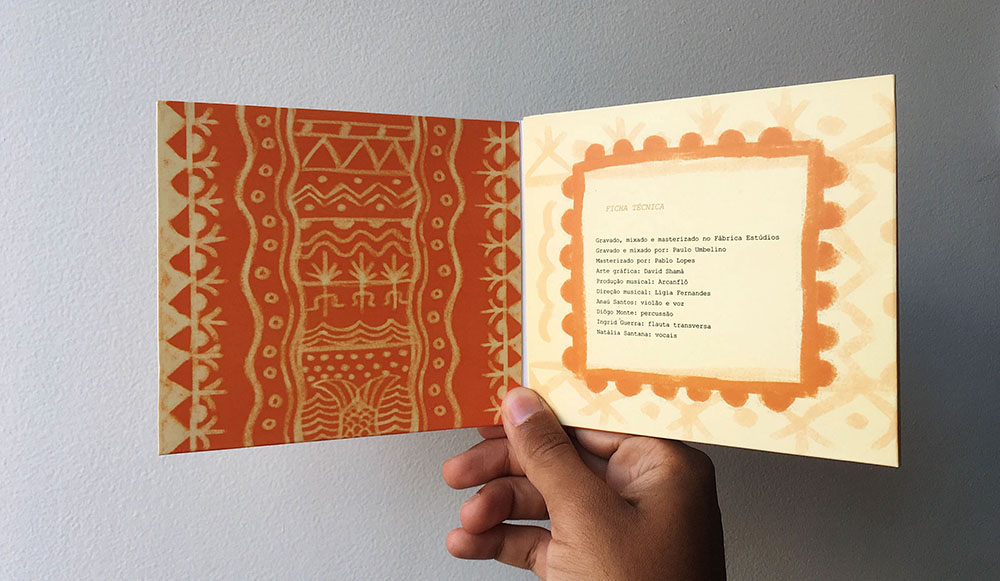 FICHA TÉCNICA
Gravado, mixado e masterizado no Fábrica Estúdios
Gravado e mixado por: Paulo Umbelino
Masterizado por: Pablo Lopes
Arte gráfica: David Shamá
Produção musical: Arcanflô
Direção musical: Lígia Fernandes
Anaú Santos: violão e voz
Diôgo Monte: percussão
Ingrid Guerra: flauta transversa
Natália Santana: vocais